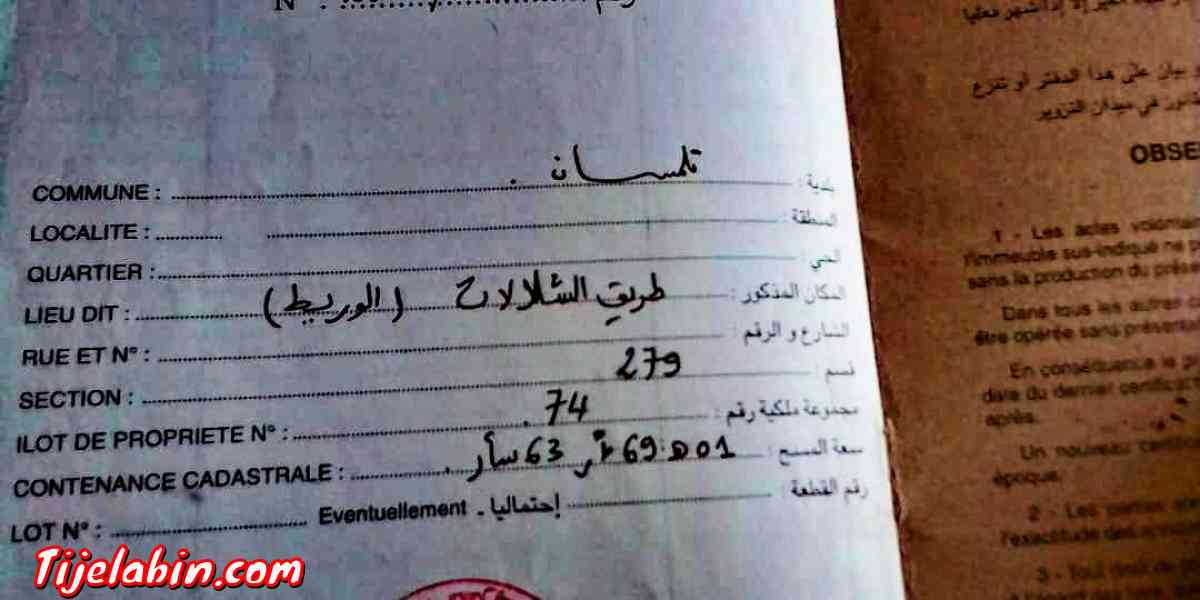 N° : رقم
COMMUNE : تلمسان بلدية :
LOCALITE : المنطقة :
QUARTIER : الحي :
LIEU DIT : طريق الشلالات (الوريط) المكان المذكور :
RUE ET N° : الشارع و الرقم :
SECTION : 279 قسم :
ILOT DE PROPRIETE N° : 74 مجموعة ملكية رقم :
CONTENANCE CADASTRALE : 01ه 69آر 63سآر سعة المسح :
LOT N° : Eventuellement - إحتماليا رقم القطعة :
Tijelabin.com
بيان على هذا الدفتر او تفرع
في ميدان التزوير
OBSE
1 - Les actes
l'immeuble sus-indiqué ne
sans la production du
Dans tous les autres
être opérée sans
En conséquence le
date du dernier
après.
Un nouveau
époque.
2 - Les parties
l'exactitude des
3 - Tout